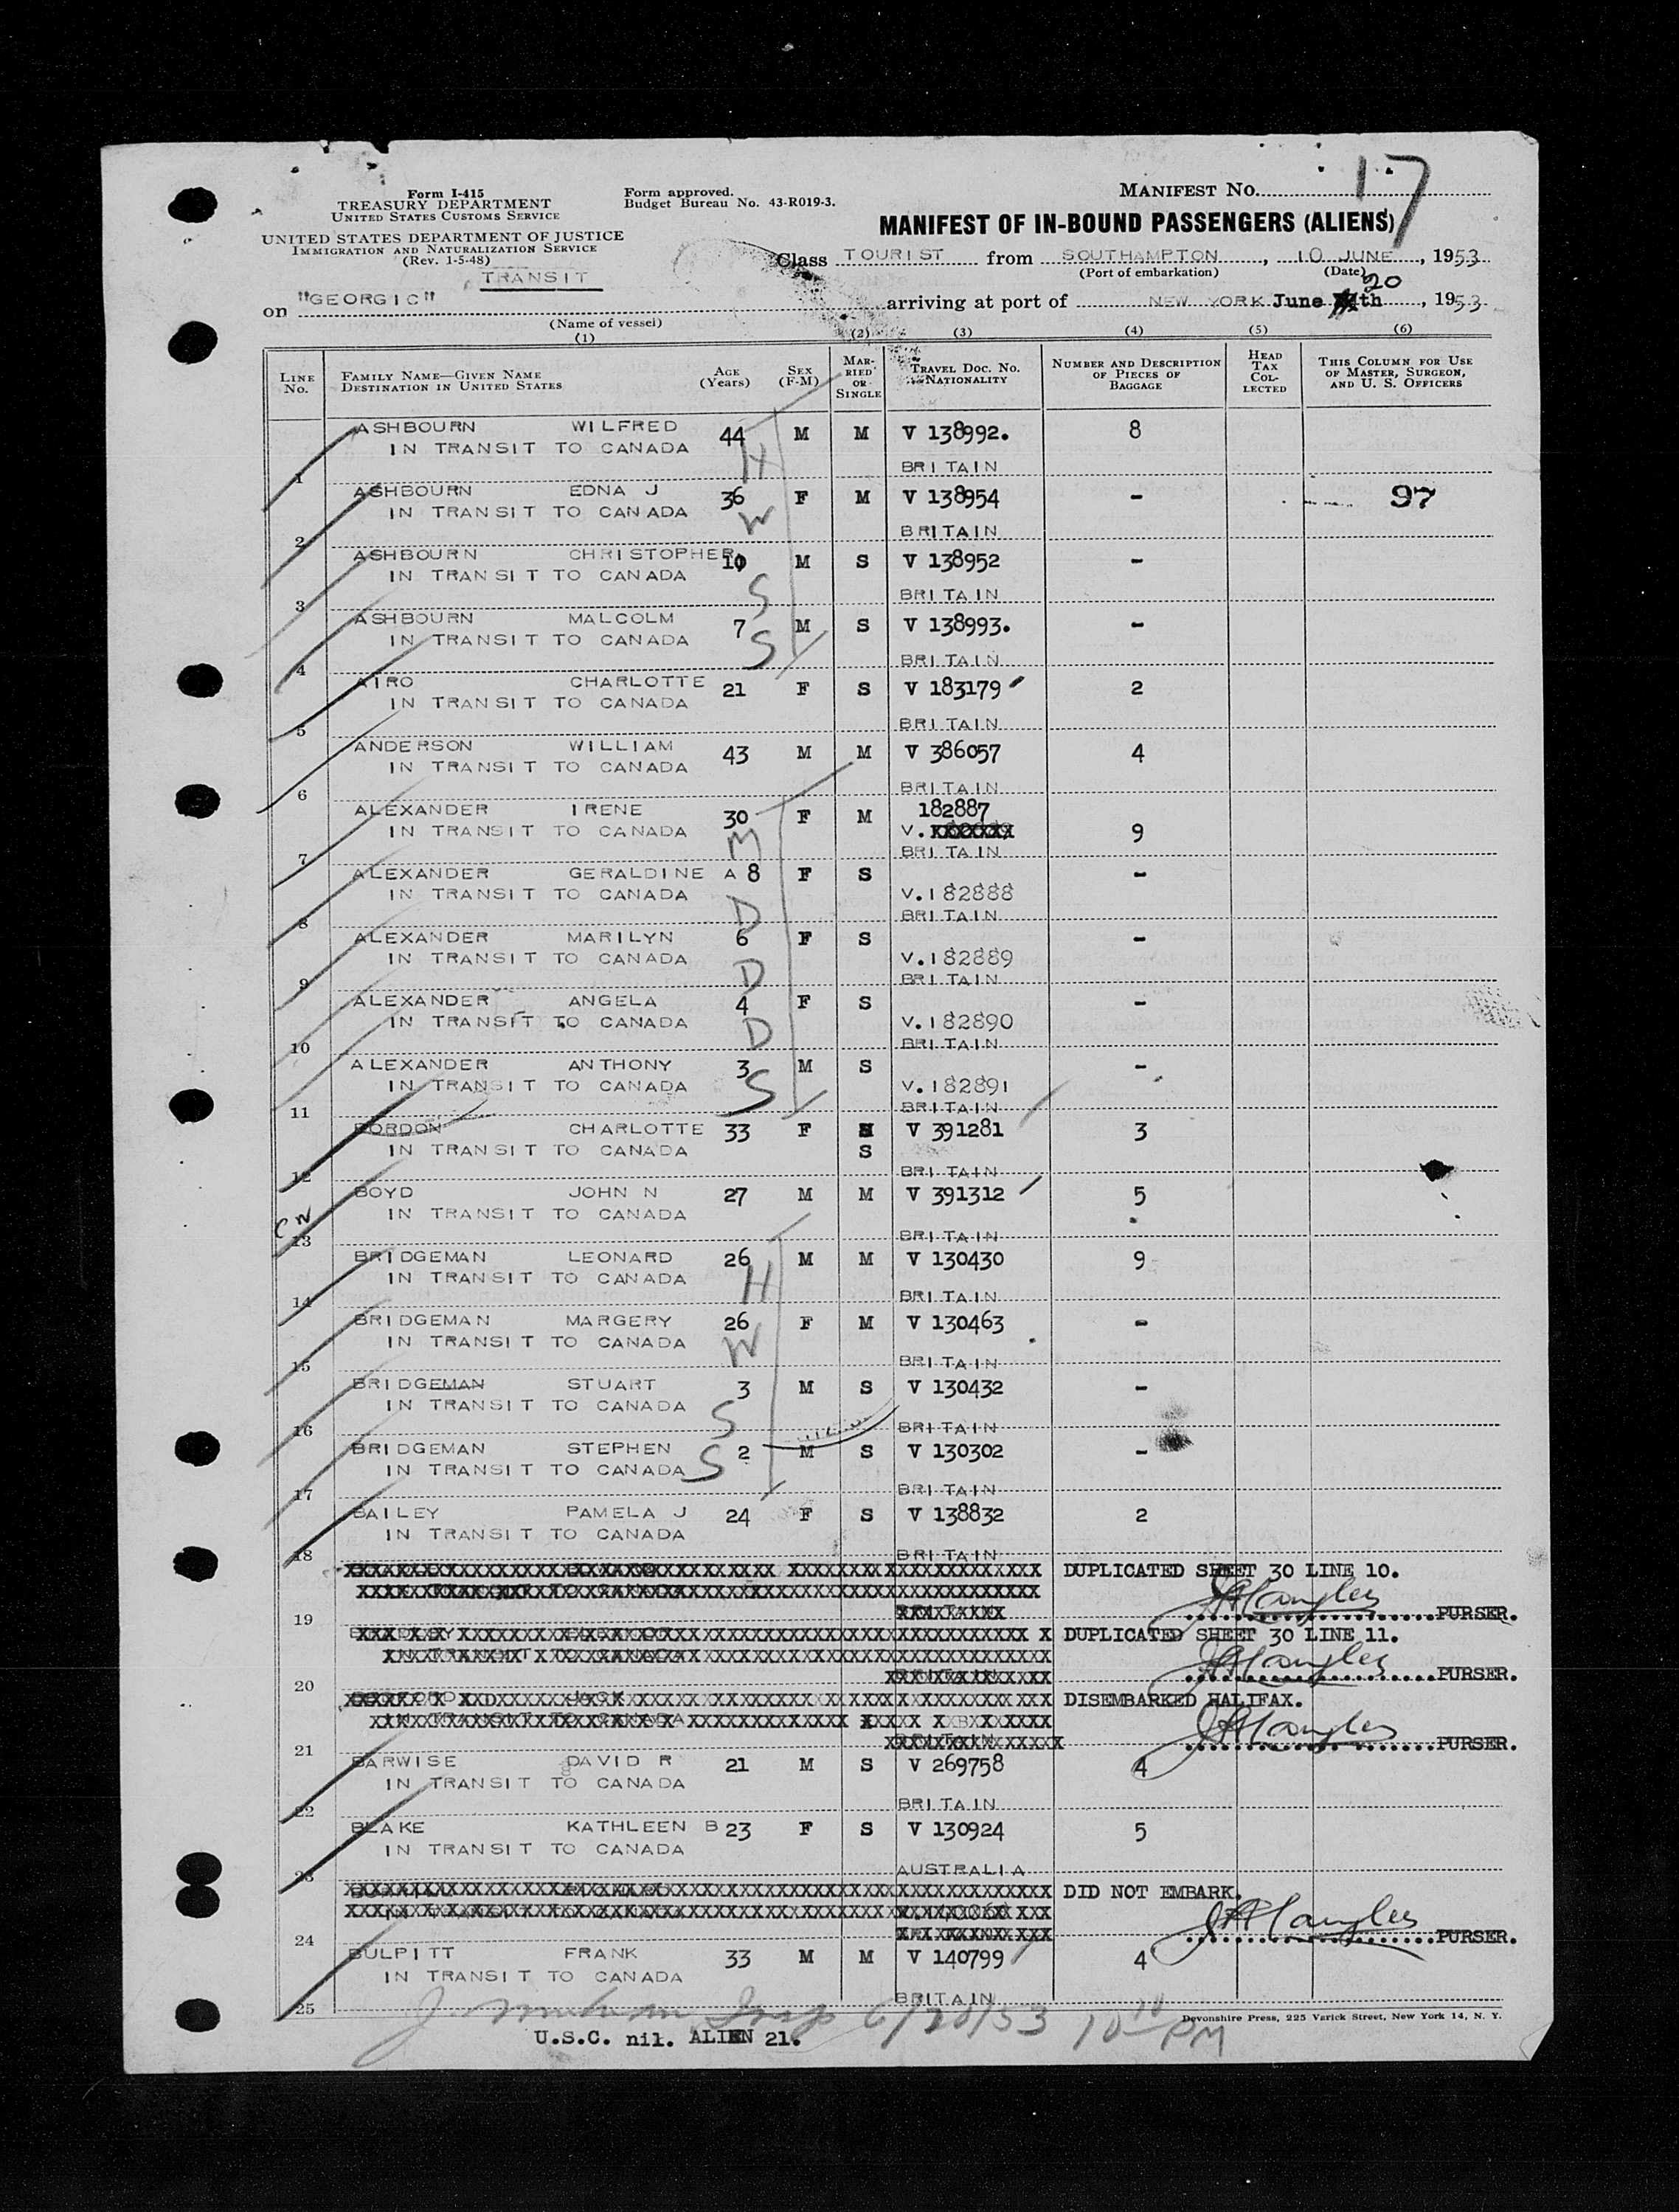 17
Form I-415
TREASURY DEPARTMENT
UNITED STATES CUSTOMS SERVICE
UNITED STATES DEPARTMENT OF JUSTICE
IMMIGRATION AND NATURALIZATION SERVICE
(Rev. 1-5-48)
TRANSIT
Form approved.
Budget Bureau No. 43-R019-3.
MANIFEST NO.
MANIFEST OF IN-BOUND PASSENGERS (ALIENS)
Class TOURIST from SOUTHAMPTON, 10 JUNE, 1953
(Port of embarkation) (Date)
20
on "GEORGIC" arriving at port of NEW YORK June th, 1953
(Name of vessel)
(1) (2) (3) (4) (5) (6)
LINE No. FAMILY NAME—GIVEN NAME DESTINATION IN UNITED STATES AGE (Years) SEX (F-M) MARRIED OR SINGLE TRAVEL DOC. NO. NATIONALITY NUMBER AND DESCRIPTION OF PIECES OF BAGGAGE HEAD TAX COLLECTED THIS COLUMN FOR USE OF MASTER, SURGEON, AND U. S. OFFICERS
ASHBOURN WILFRED 44 M M V 138992. 8
IN TRANSIT TO CANADA H
1 BRITAIN
ASHBOURN EDNA J 36 F M V 138954 - 97
IN TRANSIT TO CANADA W
2 BRITAIN
ASHBOURN CHRISTOPHER 10 M S V 138952 -
IN TRANSIT TO CANADA S
3 BRITAIN
ASHBOURN MALCOLM 7 M S V 138993. -
IN TRANSIT TO CANADA S
4 BRITAIN
AIRO CHARLOTTE 21 F S V 183179 2
IN TRANSIT TO CANADA
5 BRITAIN
ANDERSON WILLIAM 43 M M V 386057 4
IN TRANSIT TO CANADA
6 BRITAIN
ALEXANDER IRENE 30 F M 182887
IN TRANSIT TO CANADA M V. XXXXXXX 9
7 BRITAIN
ALEXANDER GERALDINE A 8 F S -
IN TRANSIT TO CANADA D V.182888
8 BRITAIN
ALEXANDER MARILYN 6 F S -
IN TRANSIT TO CANADA D V.182889
9 BRITAIN
ALEXANDER ANGELA 4 F S -
IN TRANSIT TO CANADA D V.182890
10 BRITAIN
ALEXANDER ANTHONY 3 M S -
IN TRANSIT TO CANADA S V.182891
11 BRITAIN
BORDON CHARLOTTE 33 F V 391281 3
IN TRANSIT TO CANADA S
12 BRITAIN
BOYD JOHN N 27 M M V 391312 5
IN TRANSIT TO CANADA
CW
13 BRITAIN
BRIDGEMAN LEONARD 26 M M V 130430 9
IN TRANSIT TO CANADA H
14 BRITAIN
BRIDGEMAN MARGERY 26 F M V 130463 -
IN TRANSIT TO CANADA W
15 BRITAIN
BRIDGEMAN STUART 3 M S V 130432 -
IN TRANSIT TO CANADA S
16 BRITAIN
BRIDGEMAN STEPHEN 2 M S V 130302 -
IN TRANSIT TO CANADA S
17 BRITAIN
BAILEY PAMELA J 24 F S V 138832 2
IN TRANSIT TO CANADA
18 BRITAIN
DUPLICATED SHEET 30 LINE 10.
19 PURSER.
DUPLICATED SHEET 30 LINE 11.
20 PURSER.
DISEMBARKED HALIFAX.
21 PURSER.
BARWISE DAVID R 21 M S V 269758 4
IN TRANSIT TO CANADA
22 BRITAIN
BLAKE KATHLEEN B 23 F S V 130924 5
IN TRANSIT TO CANADA
23 AUSTRALIA
DID NOT EMBARK.
24 PURSER.
BULPITT FRANK 33 M M V 140799 4
IN TRANSIT TO CANADA
25 BRITAIN
Devonshire Press, 225 Varick Street, New York 14, N. Y.
Insp 6/20/53 10 10 PM
U.S.C. nil. ALIEN 21.